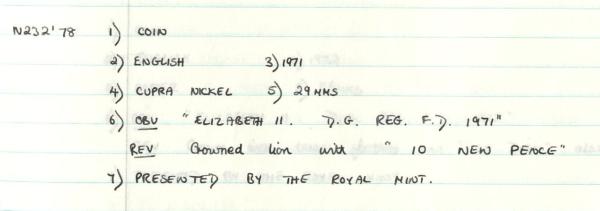 N232'78 1) COIN
2) ENGLISH 3) 1971
4) CUPRA NICKEL 5) 29 MMS
6) OBV " ELIZABETH II. D.G. REG. F.D. 1971"
REV Crowned lion with " 10 NEW PENCE"
7) PRESENTED BY THE ROYAL MINT.